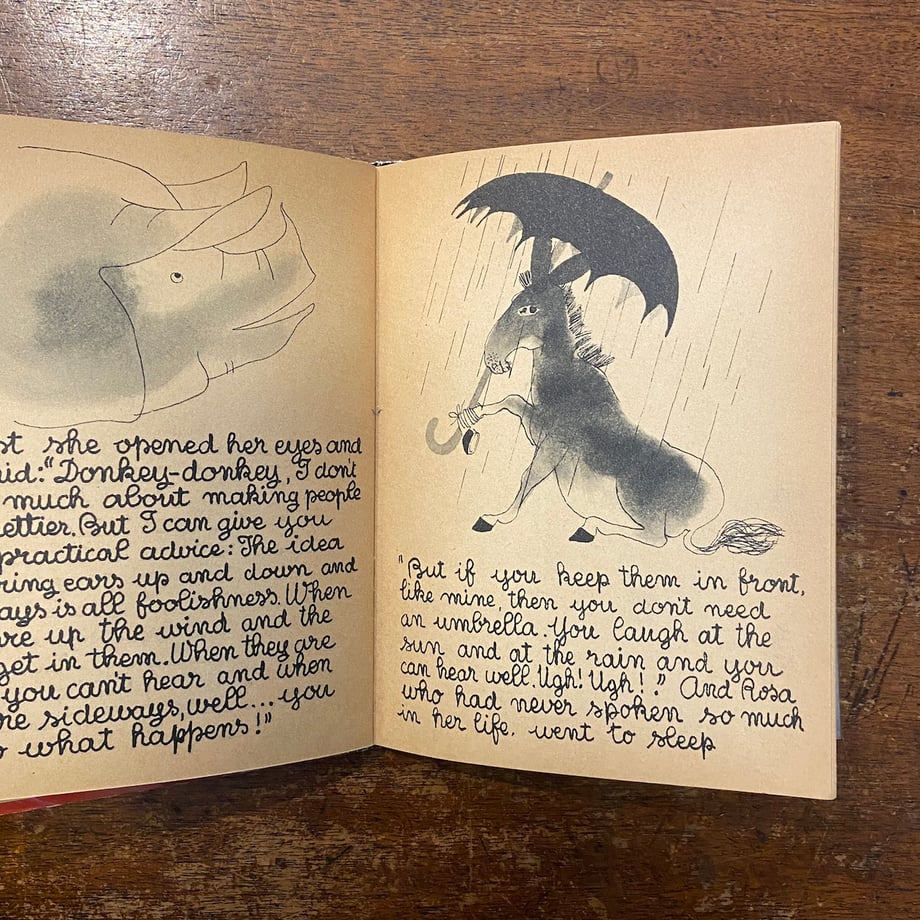 st she opened her eyes and
id: "Donkey-donkey, I don't
much about making people
ettier. But I can give you
practical advice: The idea
ring ears up and down and
ays is all foolishness. When
are up the wind and the
get in them. When they are
you can't hear and when
re sideways, well... you
o what happens!"
"But if you keep them in front,
like mine, then you don't need
an umbrella. You laugh at the
sun and at the rain and you
can hear well. Ugh! Ugh!." And Rosa
who had never spoken so much
in her life, went to sleep